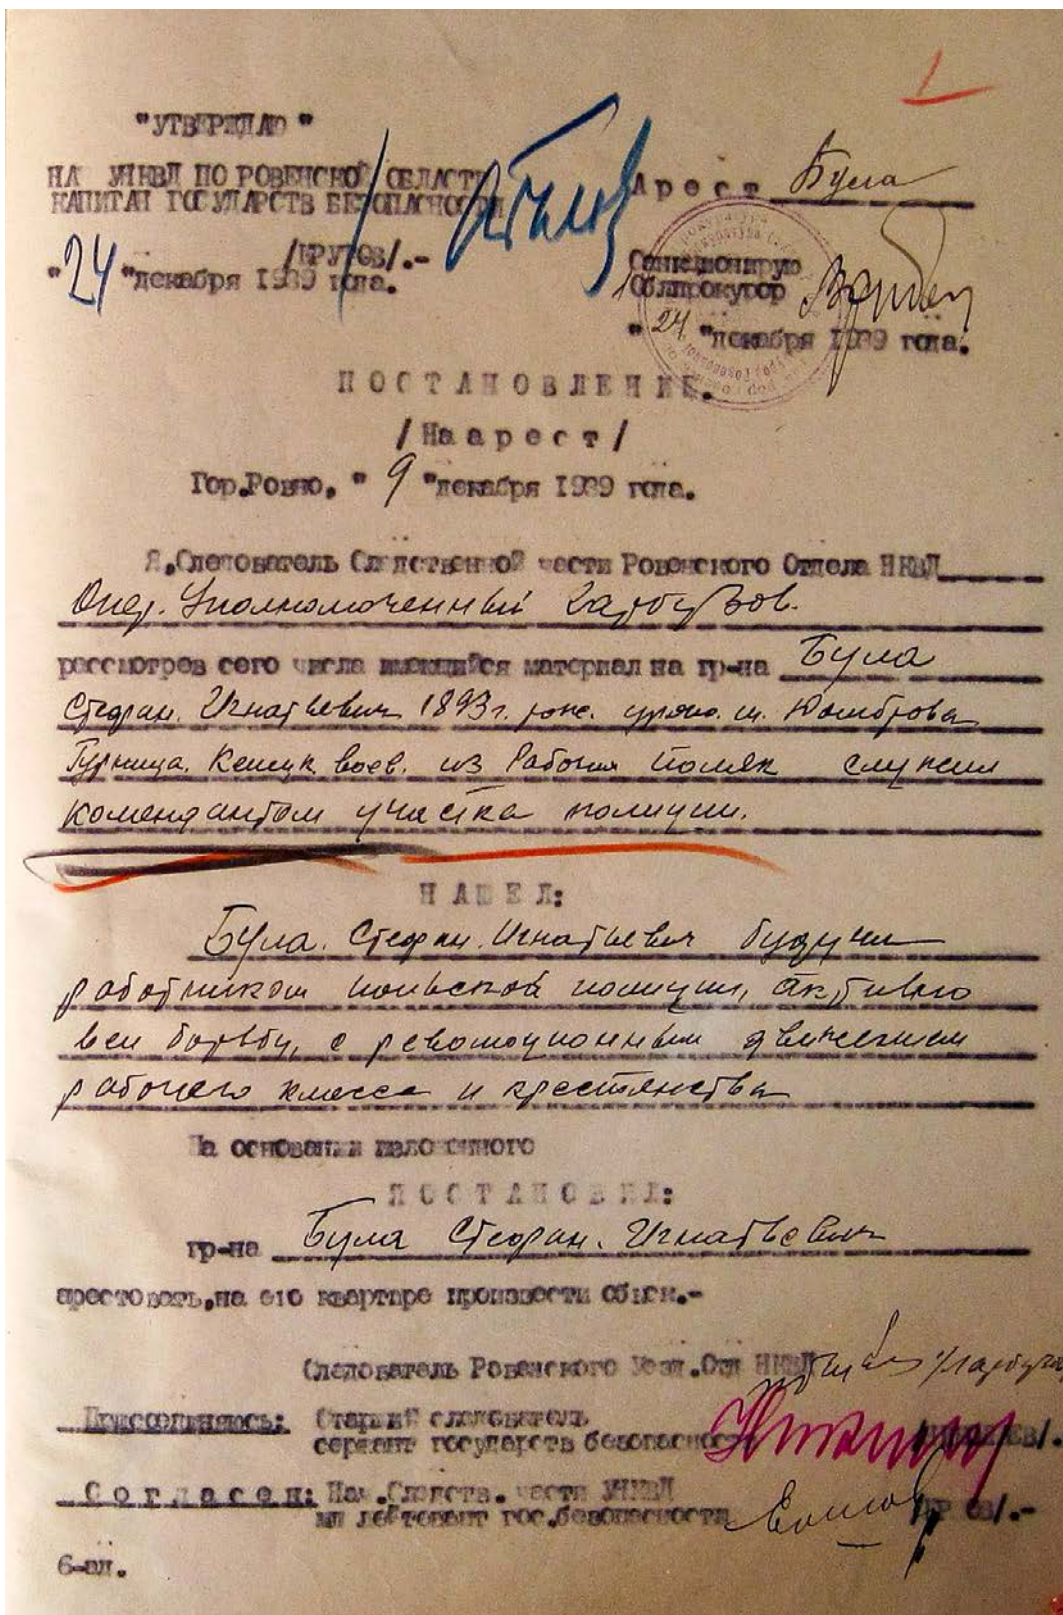 "УТВЕРЖДАЮ"
НА УНКВД ПО РОВЕНСКОЙ ОБЛАСТИ
КАПИТАН ГОСУДАРСТВ БЕЗОПАСНОСТИ
/КРУТОВ/.-
"24" декабря 1939 года.
Арест Була
Санкционирую
Облпрокурор
"24" декабря 1939 года.
ПОСТАНОВЛЕНИЕ.
/На арест/
Гор.Ровно, "9" декабря 1939 года.
Я,Следователь Следственной части Ровенского Отдела НКВД
Опер. Уполномоченный Гарбузов.
рассмотрев сего числа имеющийся материал на гр-на Була
Стефан. Игнатьевич 1893 г. рож. урож. м. Домброва
Гурница. Келецк. воев. из Рабочих поляк служил
комендантом участка полиции.
НАШЕЛ:
Була. Стефан. Игнатьевич будучи
работником польской полиции, активно
вел борьбу, с революционным движением
рабочего класса и крестьянства
На основании изложенного
ПОСТАНОВИЛ:
гр-на Була Стефан. Игнатьевич
арестовать,на его квартире произвести обыск.-
Следователь Ровенского Уезд.Отд НКВД
Присоединяюсь: Старший следователь
сержант государств безопасности
Согласен: Нач.Следств. части УНКВД
мл лейтенант гос.безопасности
6-вл.